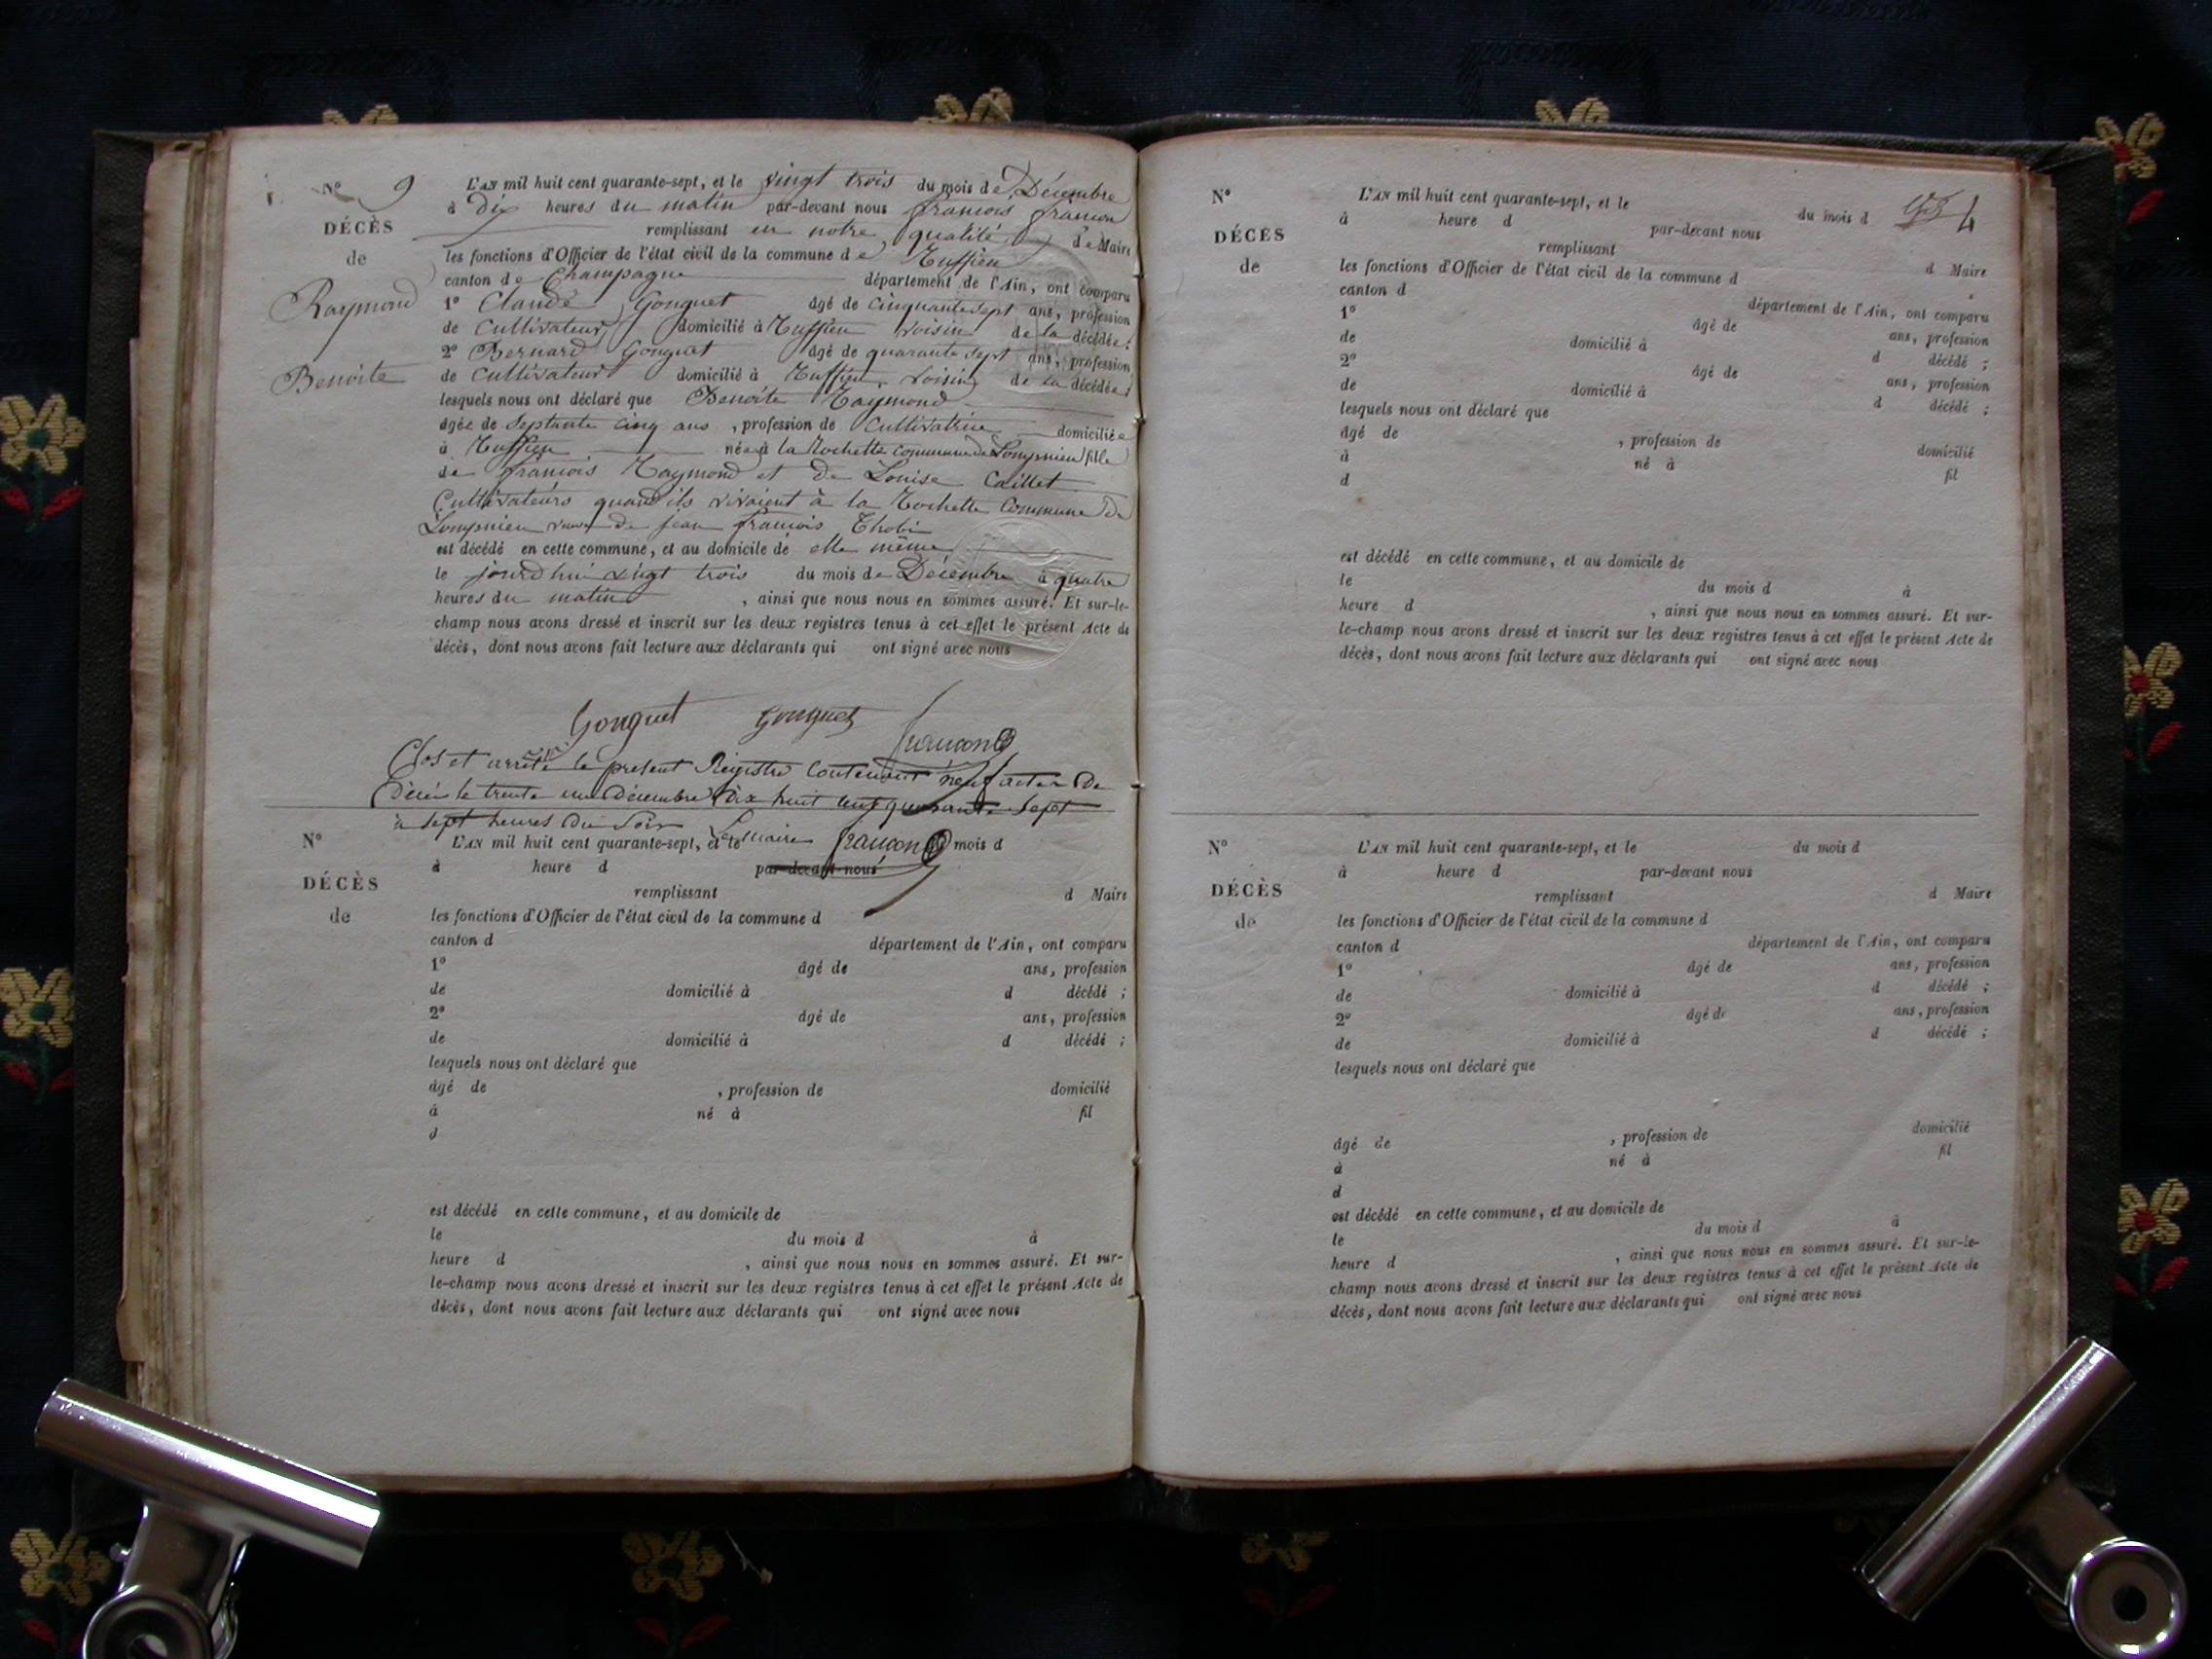 N° 9
DÉCÈS
de
Raymond
Benoite
L'AN mil huit cent quarante-sept, et le vingt trois du mois de Décembre
à dix heures du matin par-devant nous francois francon
remplissant en notre qualité de Maire
les fonctions d'Officier de l'état civil de la commune de Ruffieu
canton de Champagne département de l'Ain, ont comparu
1° Claude Gonguet âgé de cinquante sept ans, profession
de Cultivateur domicilié à Ruffieu voisin de la décédée;
2° Bernard Gonguet âgé de quarante sept ans, profession
de Cultivateur domicilié à Ruffieu, voisin de la décédée;
lesquels nous ont déclaré que Benoite Raymond
âgée de Septante cinq ans, profession de Cultivatrice domiciliée
à Ruffieu née à la Rochette commune de Lompnieu fille
de francois Raymond et de Louise Caillet
Cultivateurs quand ils vivaient à la Rochette Commune de
Lompnieu veuve de jean francois Thobi
est décédé en cette commune, et au domicile de elle même
le jourd'hui vingt trois du mois de Décembre à quatre
heures du matin, ainsi que nous nous en sommes assuré. Et sur-le-
champ nous avons dressé et inscrit sur les deux registres tenus à cet effet le présent Acte de
décès, dont nous avons fait lecture aux déclarants qui ont signé avec nous
Gonguet Gonguet francon
Clos et arrêté le present Registre Contenant neuf actes De
Décès le trente un Décembre dix huit cent quarante Sept
à sept heures Du Soir Le Maire francon
N°
DÉCÈS
de
L'AN mil huit cent quarante-sept, et le mois d
à heure d par-devant nous
remplissant d Maire
les fonctions d'Officier de l'état civil de la commune d
canton d département de l'Ain, ont comparu
1° âgé de ans, profession
de domicilié à d décédé ;
2° âgé de ans, profession
de domicilié à d décédé ;
lesquels nous ont déclaré que
âgé de , profession de domicilié
à né à fil
d
est décédé en cette commune, et au domicile de
le du mois d à
heure d , ainsi que nous nous en sommes assuré. Et sur-
le-champ nous avons dressé et inscrit sur les deux registres tenus à cet effet le présent Acte de
décès, dont nous avons fait lecture aux déclarants qui ont signé avec nous
4
N°
DÉCÈS
de
L'AN mil huit cent quarante-sept, et le du mois d
à heure d par-devant nous
remplissant d Maire
les fonctions d'Officier de l'état civil de la commune d
canton d département de l'Ain, ont comparu
1° âgé de ans, profession
de domicilié à d décédé ;
2° âgé de ans, profession
de domicilié à d décédé ;
lesquels nous ont déclaré que
âgé de , profession de domicilié
à né à fil
d
est décédé en cette commune, et au domicile de
le du mois d à
heure d , ainsi que nous nous en sommes assuré. Et sur-
le-champ nous avons dressé et inscrit sur les deux registres tenus à cet effet le présent Acte de
décès, dont nous avons fait lecture aux déclarants qui ont signé avec nous
N°
DÉCÈS
de
L'AN mil huit cent quarante-sept, et le du mois d
à heure d par-devant nous
remplissant d Maire
les fonctions d'Officier de l'état civil de la commune d
canton d département de l'Ain, ont comparu
1° âgé de ans, profession
de domicilié à d décédé ;
2° âgé de ans, profession
de domicilié à d décédé ;
lesquels nous ont déclaré que
âgé de , profession de domicilié
à né à fil
d
est décédé en cette commune, et au domicile de
le du mois d à
heure d , ainsi que nous nous en sommes assuré. Et sur-le-
champ nous avons dressé et inscrit sur les deux registres tenus à cet effet le présent Acte de
décès, dont nous avons fait lecture aux déclarants qui ont signé avec nous